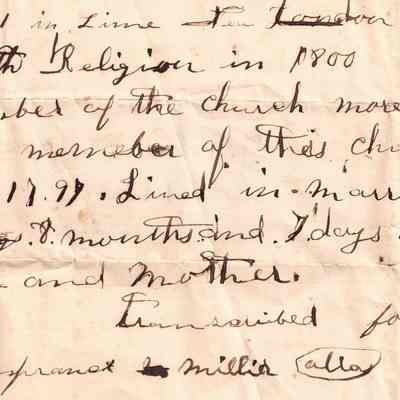 in Lime New London
th Religion in 1800
ber of the church more
memeber of this chu
17.97. Lived in marr
8. mounths and. 7 days
and Mother.
Transcribed fo
millia alla